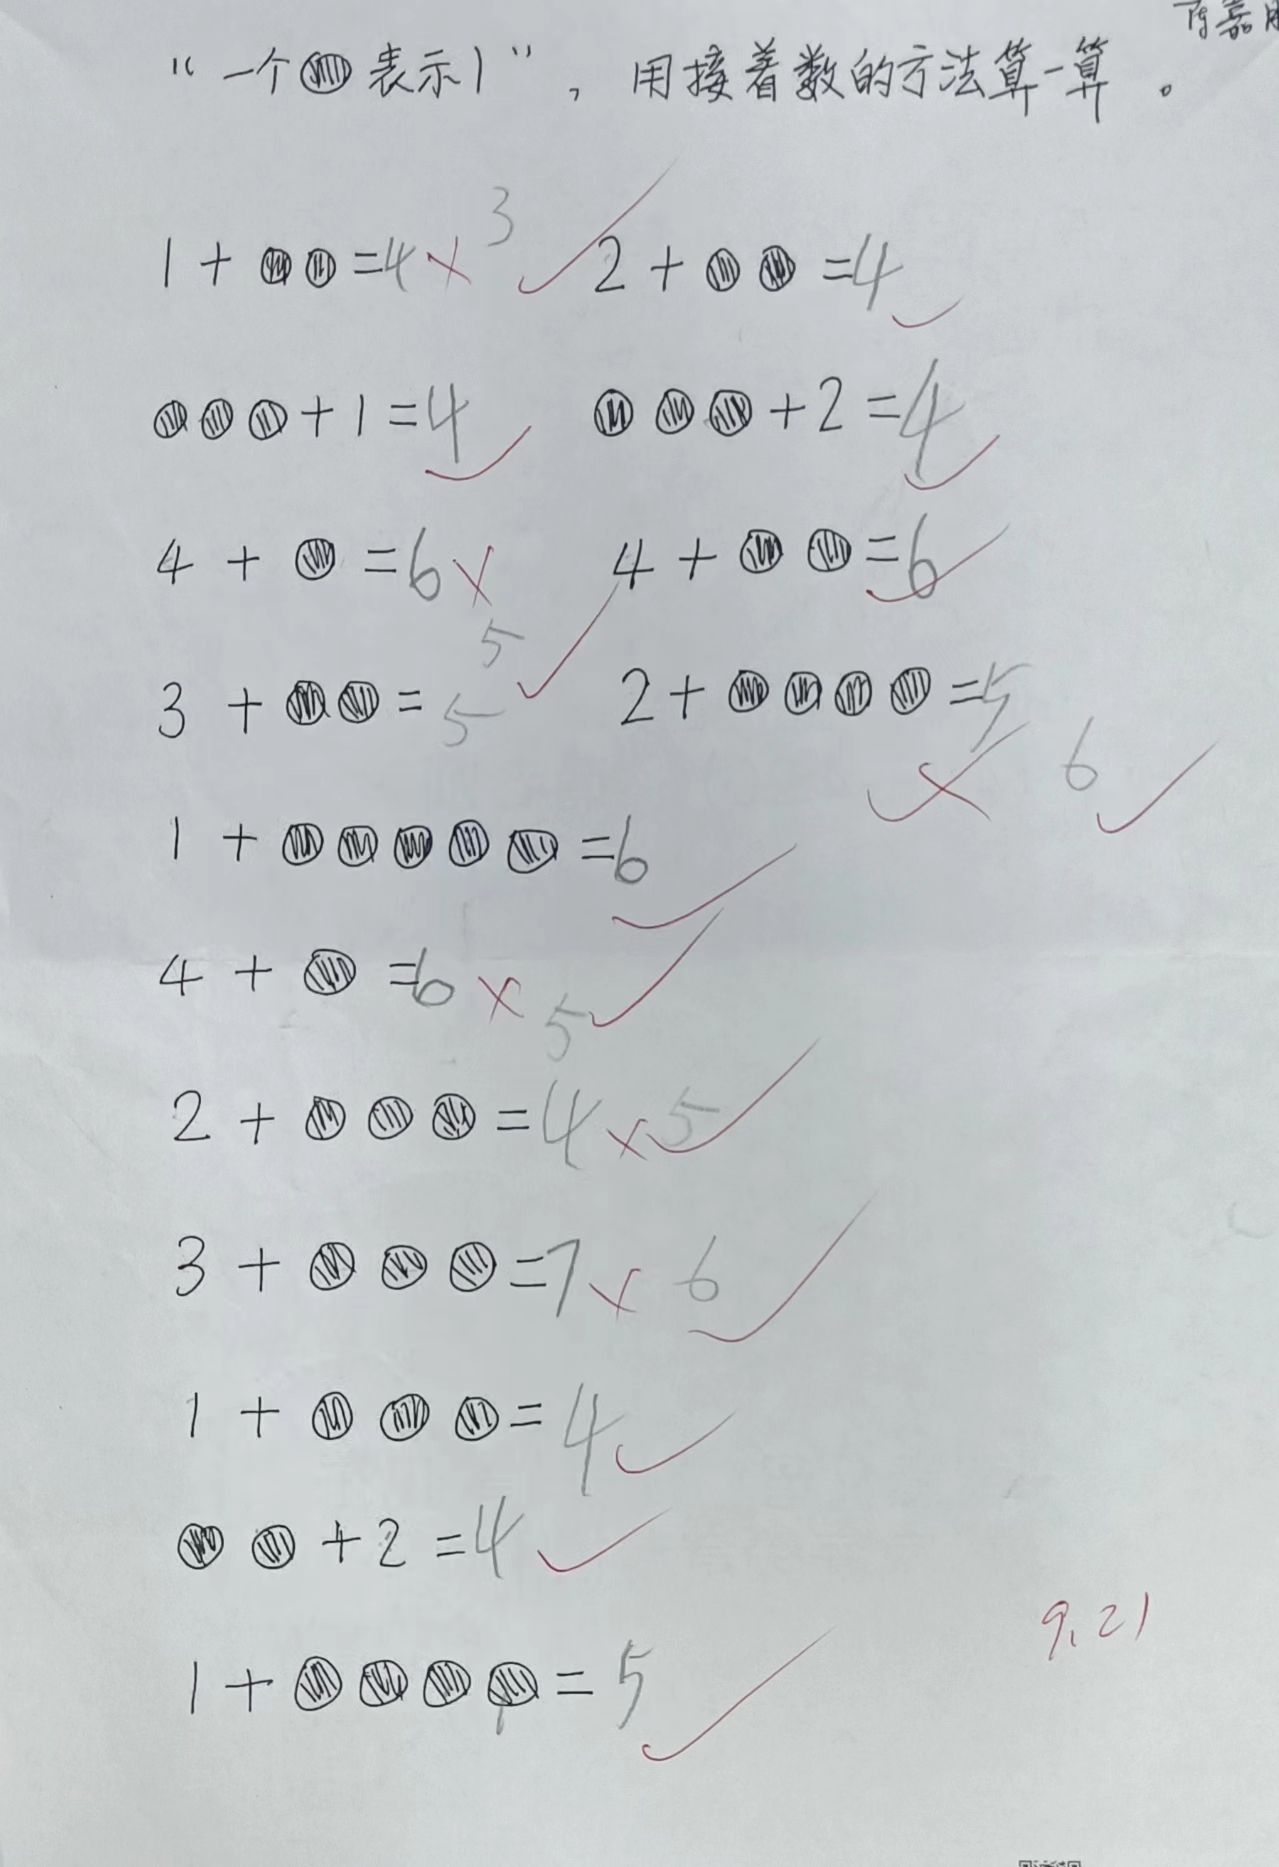 陈嘉
“一个●表示1”，用接着数的方法算一算。
1+●●=4×3✓ 2+●●=4✓
●●●+1=4✓ ●●●+2=4✓
4+●=6×5✓ 4+●●=6✓
3+●●=5 2+●●●●=5× 6✓
1+●●●●●=6✓
4+●=6×5✓
2+●●●=4×5✓
3+●●●=7×6✓
1+●●●=4✓
●●+2=4✓
1+●●●●=5✓
9.21